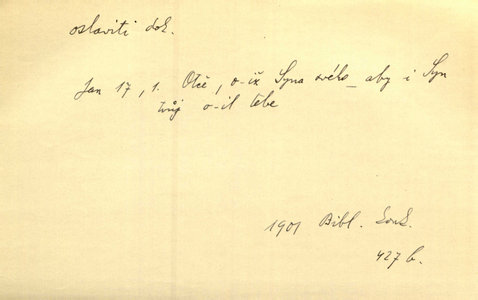 oslaviti dok.
Jan 17, 1. Otče, o-iž Syna svého_ aby i Syn
tvůj o-il tebe
1901 Bibl.
427 b.